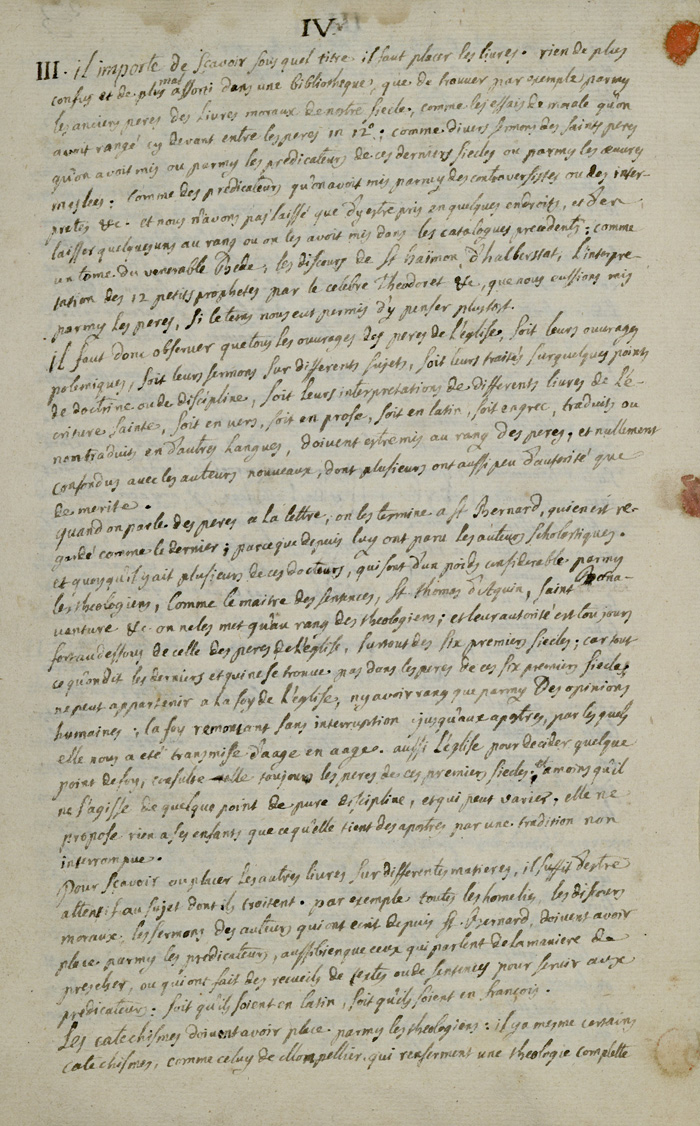 IV.
III. il importe de sçavoir sous quel titre il faut placer les livres. rien de plus
confus et de plus mal assorti dans une bibliotheque, que de trouver par exemple parmy
les anciens peres des livres moraux de nostre siecle, comme les essais de morale qu'on
avoit rangé cy devant entre les peres in 12°; comme divers sermons des saints peres
qu'on avoit mis ou parmy les predicateurs de ces derniers siecles ou parmy les œuvres
meslées: comme des predicateurs qu'on avoit mis parmy des controversistes ou des inter-
pretes &c. et nous n'avons pas laissé que d'y estre pris en quelques endroits, et d'en
laisser quelques uns au rang ou on les avoit mis dans les catalogues precedents; comme
un tome du venerable Bede, les discours de St haimon d'halberstat, l'interpre-
tation des 12 petits prophetes par le celebre Theodoret &c, que nous eussions mis
parmy les peres, si le tems nous eut permis d'y penser plustost.
il faut donc observer que tous les ouvrages des peres de l'église, soit leurs ouvrages
polemiques, soit leurs sermons sur differents sujets, soit leurs traités sur quelques points
de doctrine ou de discipline, soit leurs interpretations de differents livres de l'é-
criture sainte, soit en vers, soit en prose, soit en latin, soit en grec, traduits ou
non traduits en d'autres langues, doivent estre mis au rang des peres, et nullement
confondus avec les auteurs nouveaux, dont plusieurs ont aussi peu d'autorité que
de merite.
quand on parle des peres a la lettre, on les termine a st Bernard, qui en est re-
gardé comme le dernier; parce que depuis luy ont paru les auteurs scholastiques.
et quoy qu'il y ait plusieurs de ces docteurs, qui sont d'un poids considerable parmy
les theologiens, comme le maitre des sentences, St. thomas d'Aquin, saint Bona-
venture &c on ne les met qu'au rang des theologiens; et leur autorité est toujours
fort au dessous de celle des peres de l'église, surtout des six premiers siecles; car tout
ce qu'on dit les derniers et qui ne se trouve pas dans les peres de ces six premiers siecles,
ne peut appartenir a la foy de l'église, ny avoir rang que parmy des opinions
humaines; la foy remontant sans interruption jusqu'aux apostres, par lesquels
elle nous a eté transmise d'aage en aage. aussi l'église pour decider quelque
point de foy, consulte-elle toujours les peres de ces premiers siecles; et a moins qu'il
ne s'agisse de quelque point de pure discipline, et qui peut varier, elle ne
propose rien a ses enfants que ce qu'elle tient des apostres par une tradition non
interrompue.
Pour sçavoir ou placer les autres livres sur differentes matieres, il suffit d'estre
attentif au sujet dont ils traitent. par exemple toutes les homelies, les discours
moraux, les sermons des auteurs qui ont ecrit depuis St. Bernard, doivent avoir
place parmy les predicateurs, aussi bien que ceux qui parlent de la maniere de
prescher, ou qui ont fait des recueils de textes ou de sentences pour servir aux
predicateurs: soit qu'ils soient en latin, soit qu'ils soient en françois.
Les catechismes doivent avoir place parmy les theologiens: il y a mesme certains
catechismes, comme celuy de Montpellier qui renferment une theologie complette